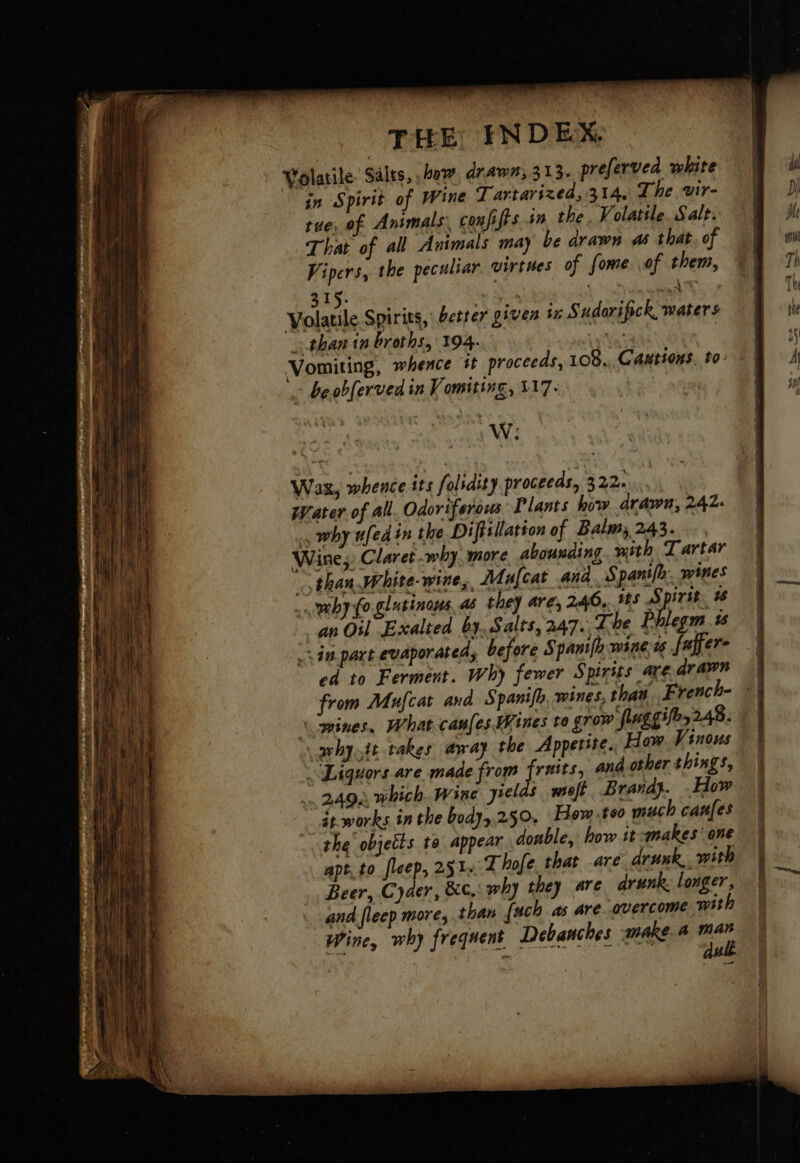 THE INDEX.
Volatile Salts, how drawn, 313. preſerved white
in Spirit of Wine Tartarized, 314. The vir-
tue, of Animals, conſiſts in the Volatile Salt.
That of all Animals may be drawn as that of
Vipers, the peculiar virtues of ſome of them,
315.
Volatile Spirits, better given in Sudorifick waters
than in broths, 194.
Vomiting, whence it proceeds, 108. Cautions to
be obſerved in Vomiting, 117.
W.
Wax, whence its ſolidity proceeds, 322.
Water of all Odoriferous Plants how drawn, 242.
why uſed in the Diſtillation of Balm, 243.
Wine, Claret why more abounding with Tartar
than White-wine, Muſcat and Spaniſh wines
why ſo glutinous as they are, 246. its Spirit is
an Oil Exalted by Salts, 247. The Phlegm is
in part evaporated, before Spaniſh wine is ſuffer-
ed to Ferment. Why fewer Spirits are drawn
from Muſcat and Spaniſh wines, than French-
wines. What cauſes Wines to grow ſluggiſh, 248.
why it takes away the Appetite. How Vinous
Liquors are made from fruits, and other things,
249. which Wine yields moſt Brandy. How
it works in the body, 250. How too much cauſes
the objects to appear double, how it makes one
apt to ſleep, 251. Thoſe that are drunk with
Beer, Cyder, &c. why they are drunk longer,
and ſleep more, than ſuch as are overcome with
Wine, why frequent Debauches make a man
dull